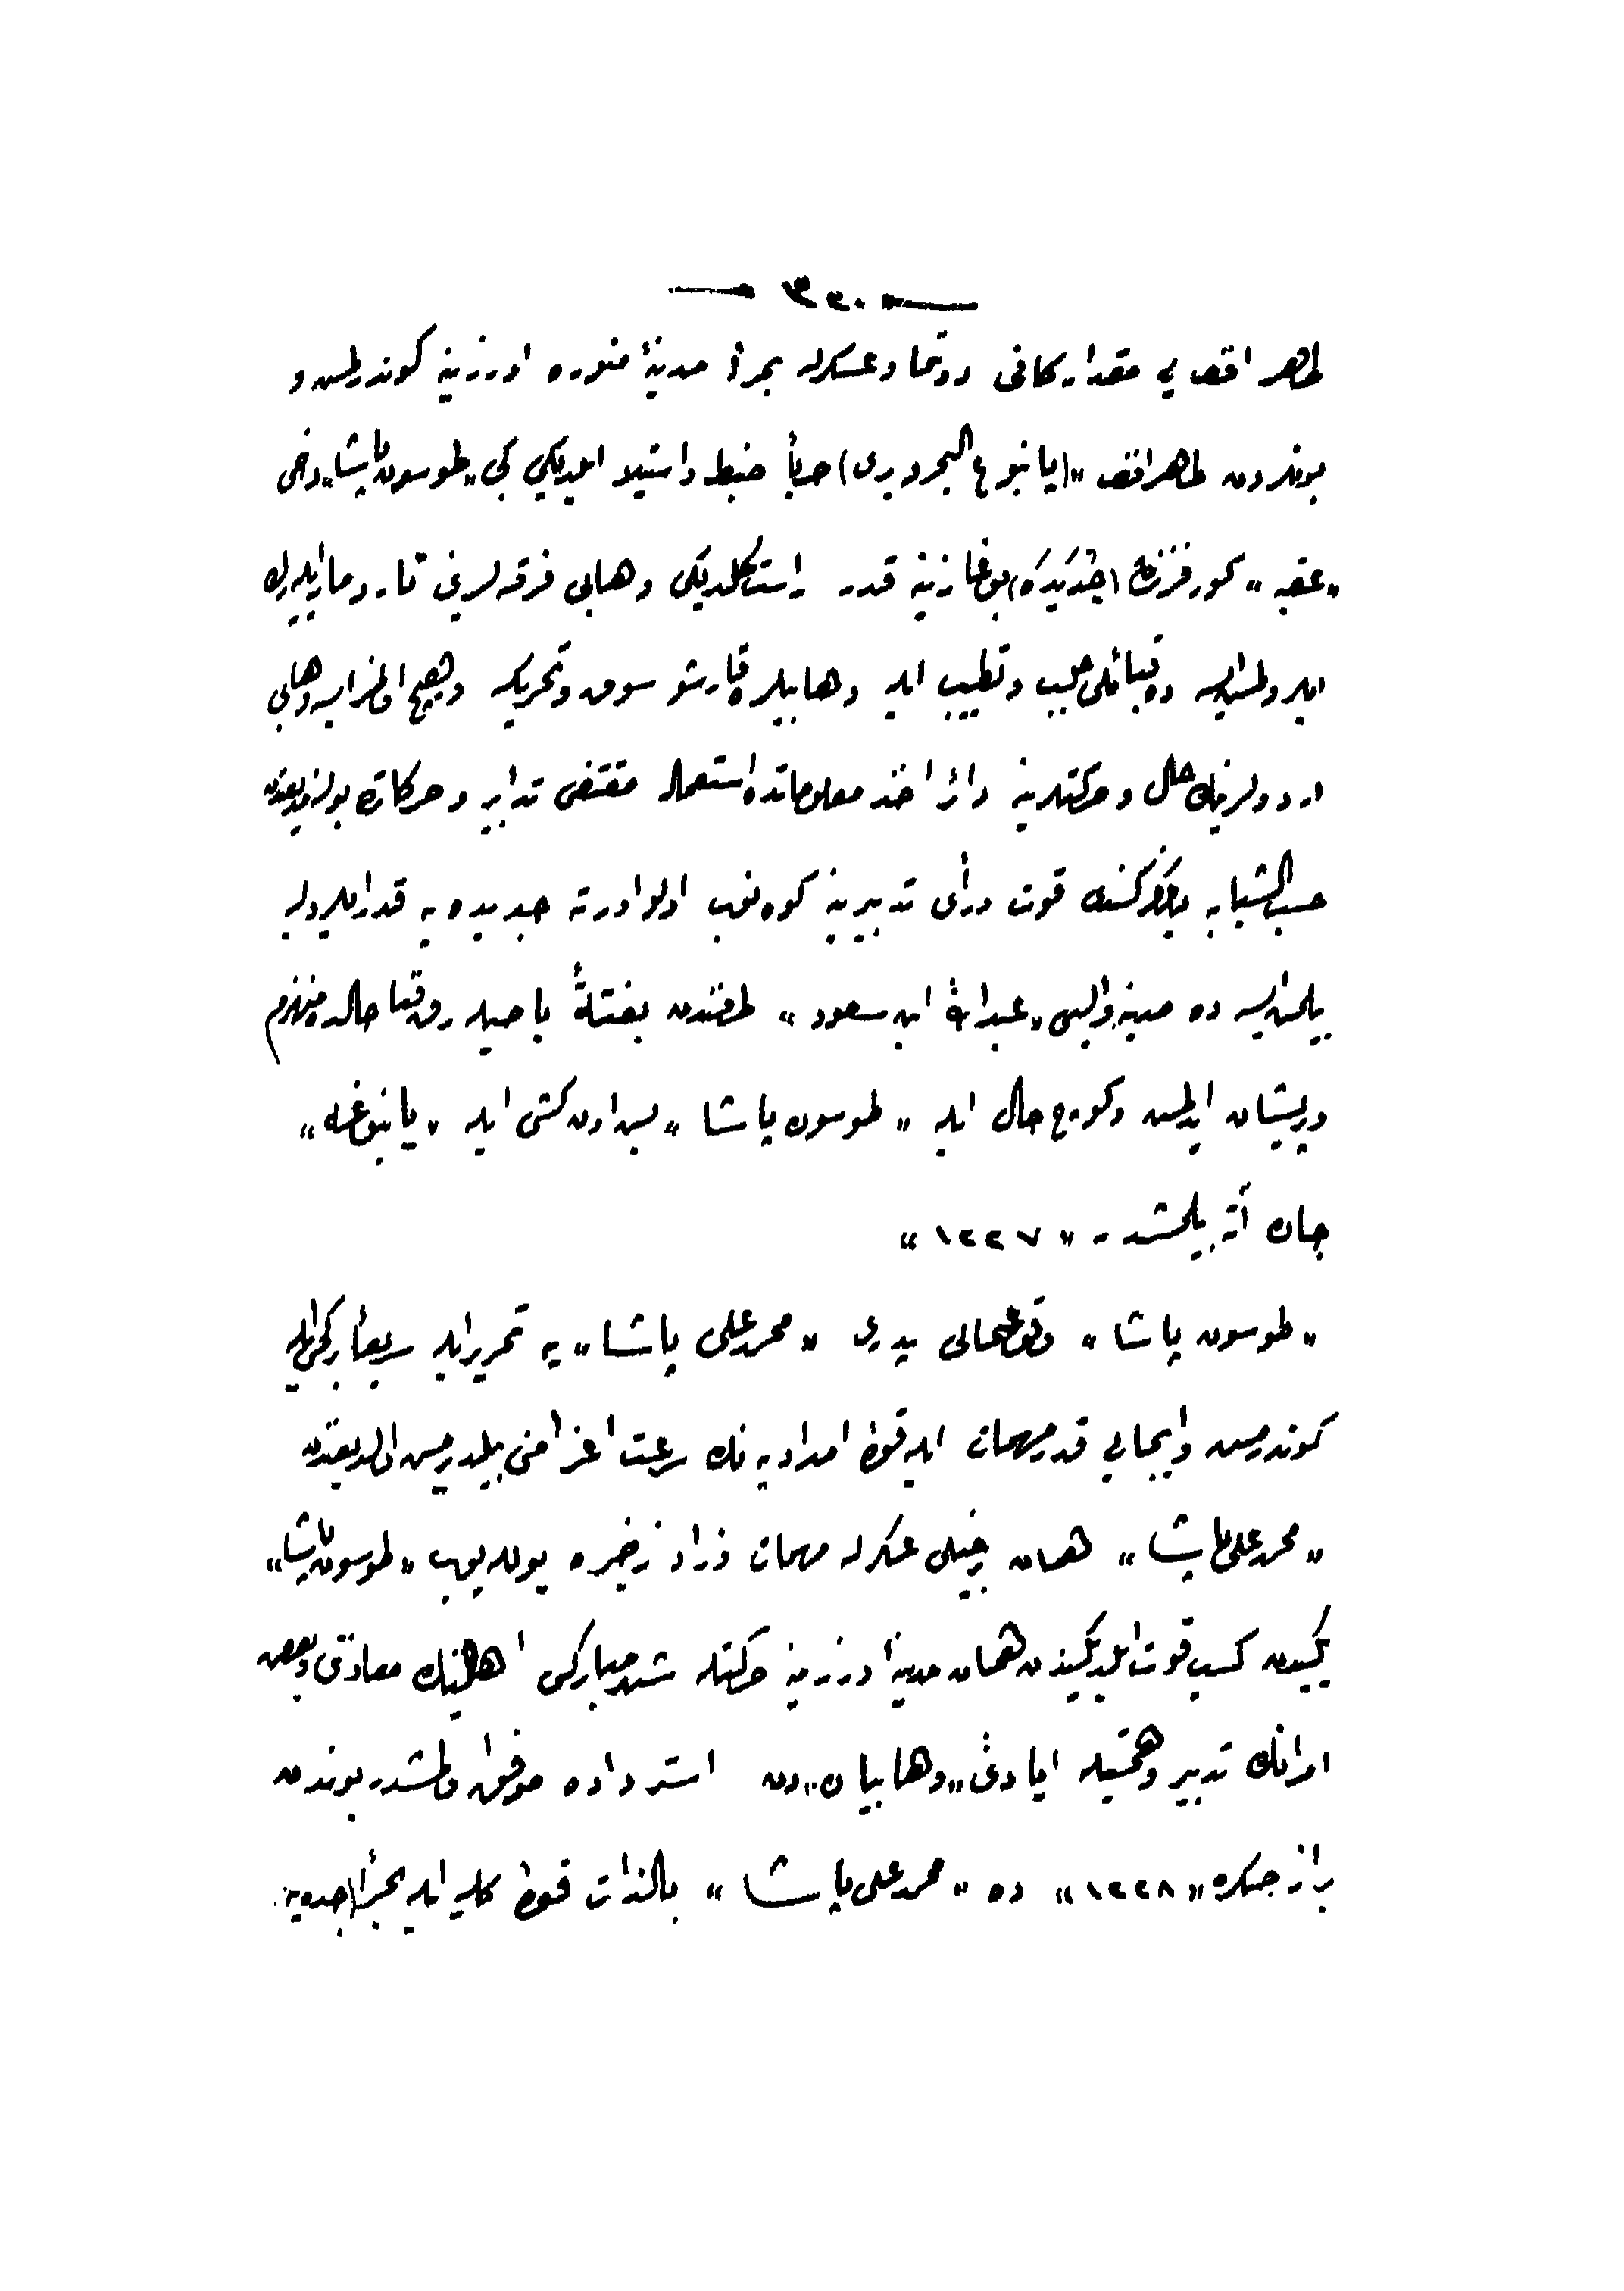 — ٣٢٠ —
طاهر افندی مقدار کافی دوننما و عسکرله بحراً مدینهٔ منوره اوزرینه کوندرلمش و
بونلردن طاهر افندی «(یانبوع البحر و بری) حرباً ضبط و استیلا ایلدیکی کبی «طوسون پاشا» دخی
«عقبه» کورفزندن (جُدَیدَه) بوغازینه قدر راست کلدیکی وهابی فرقه لرینی تار و مار ایلیه رك
ایلرولمش ایسه ده قبائلی جلب و تطییب ایله وهابیلره قارشو سوق و تحریك و هیچ اولمز ایسه وهابی
اردولرینك حال و حرکتلرینه دائر اخذ معلوماتده استعمال مقتضی تدابیر و حرکاتده بولنمدیغندن
حسب الشبابه یالکز کندی قوت و رأی تدبیرینه کوه نوب اولوادرته جدیده یه قدر ایلرولیه
بیلمش ایسه ده مدینه والیسی «عبدالله ابن سعود» طرفندن بغتةً باصیله رق قتا حالده منهزم
و پریشان ایدلمش و کوج حال ایله «طوسون پاشا» بش اون کشی ایله «یانبوعه»
جان آته بیلمشدر - «١٢٢٧»
«طوسون پاشا» وقوعحالی پدری «محمد علی پاشا» یه تحریر ایله سریعاً برکمی ایله
کوندرمش و ایجابی قدر مهمات ایله قوهٔ امدادیه نك سرعت اعزامنی بیلدرمش اولدیغندن
«محمد علی پاشا» همان برخیلی عسکرله مهمات و زاد و ذخیره یوللایوب «طوسون پاشا»
یکیدن کسب قوت ایلدیکندن همان مدینه اوزرینه حرکتله شهر مبارکی اهالینك معاونتی و بعض
امرانك تدبیر و همتیله ایادئ «وهابیان» دن استرداده موفق اولمشدر بوندن
براز صکره «١٢٢٨» ده «محمد علی پاشا» بالذات قوهٔ کلیه ایله بحراً (جده یه)